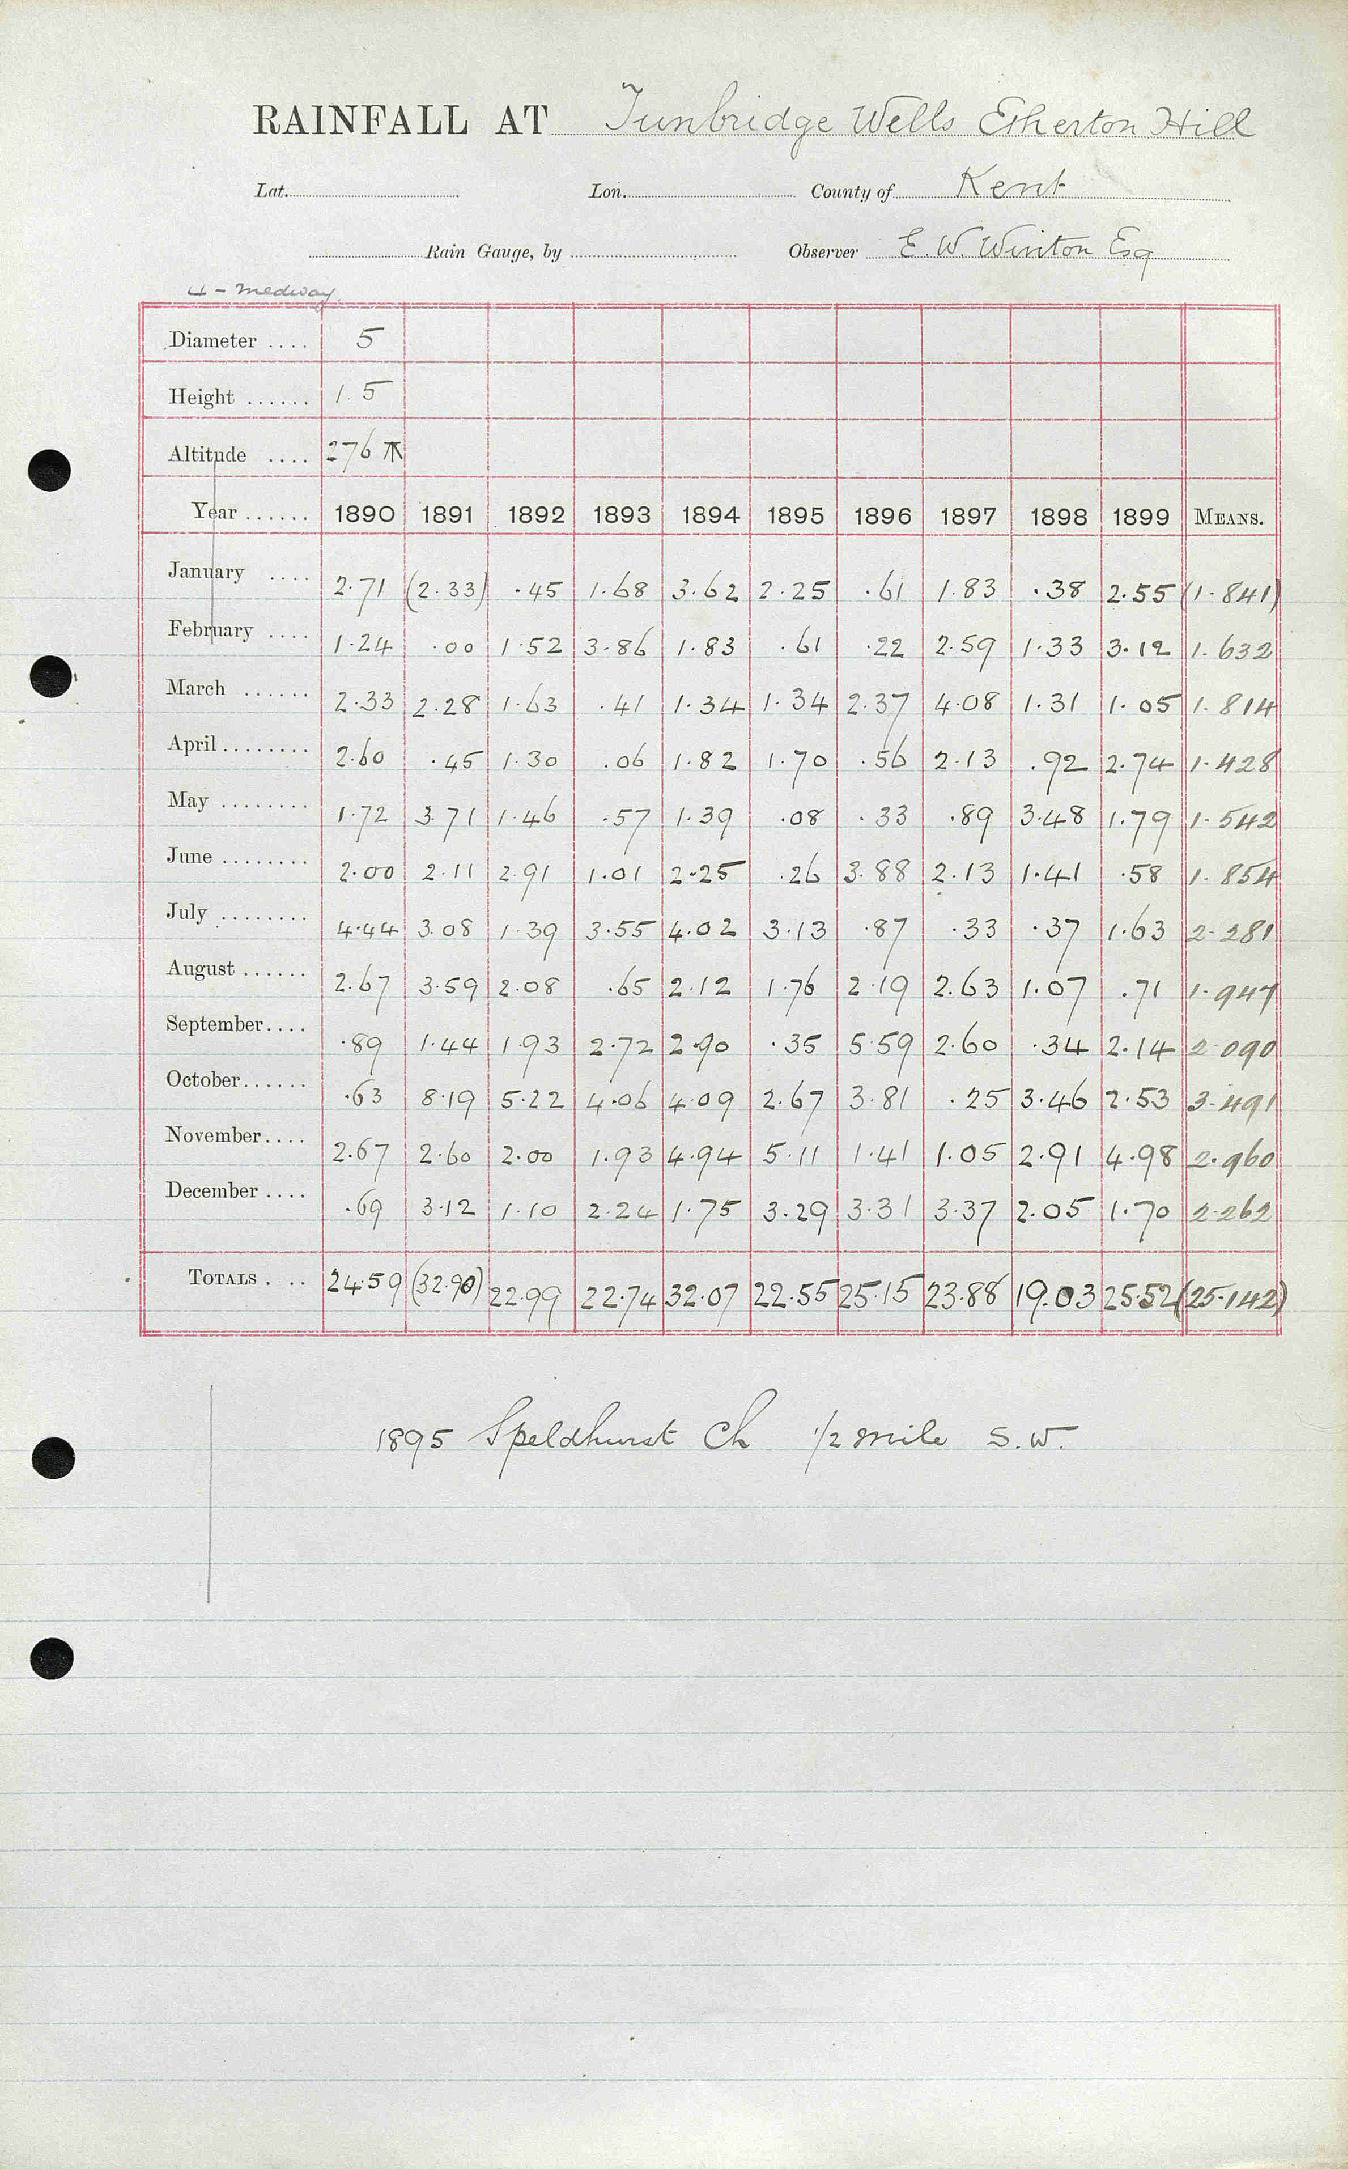 RAINFALL AT Tunbridge Wells Etherton Hill
Lat. Lon. County of Kent
Rain Gauge, by Observer E. W. Winton Esq
4 - Medway
Diameter .... 5
Height ...... 1.5
Altitude .... 276
Year ...... 1890 1891 1892 1893 1894 1895 1896 1897 1898 1899 MEANS.
January .... 2.71 (2.33) .45 1.68 3.62 2.25 .61 1.83 .38 2.55 (1.841)
February .... 1.24 .00 1.52 3.86 1.83 .61 .22 2.59 1.33 3.12 1.632
March ...... 2.33 2.28 1.63 .41 1.34 1.34 2.37 4.08 1.31 1.05 1.814
April ........ 2.60 .45 1.30 .06 1.82 1.70 .56 2.13 .92 2.74 1.428
May ........ 1.72 3.71 1.46 .57 1.39 .08 .33 .89 3.48 1.79 1.542
June ........ 2.00 2.11 2.91 1.01 2.25 .26 3.88 2.13 1.41 .58 1.854
July ........ 4.44 3.08 1.39 3.55 4.02 3.13 .87 .33 .37 1.63 2.281
August ...... 2.67 3.59 2.08 .65 2.12 1.76 2.19 2.63 1.07 .71 1.947
September .... .89 1.44 1.93 2.72 2.90 .35 5.59 2.60 .34 2.14 2.090
October ...... .63 8.19 5.22 4.06 4.09 2.67 3.81 .25 3.46 2.53 3.491
November .... 2.67 2.60 2.00 1.93 4.94 5.11 1.41 1.05 2.91 4.98 2.960
December .... .69 3.12 1.10 2.24 1.75 3.29 3.31 3.37 2.05 1.70 2.262
TOTALS . .. 24.59 (32.90) 22.99 22.74 32.07 22.55 25.15 23.88 19.03 25.52 (25.142)
1895 Speldhurst Ch 1/2 mile S.W.